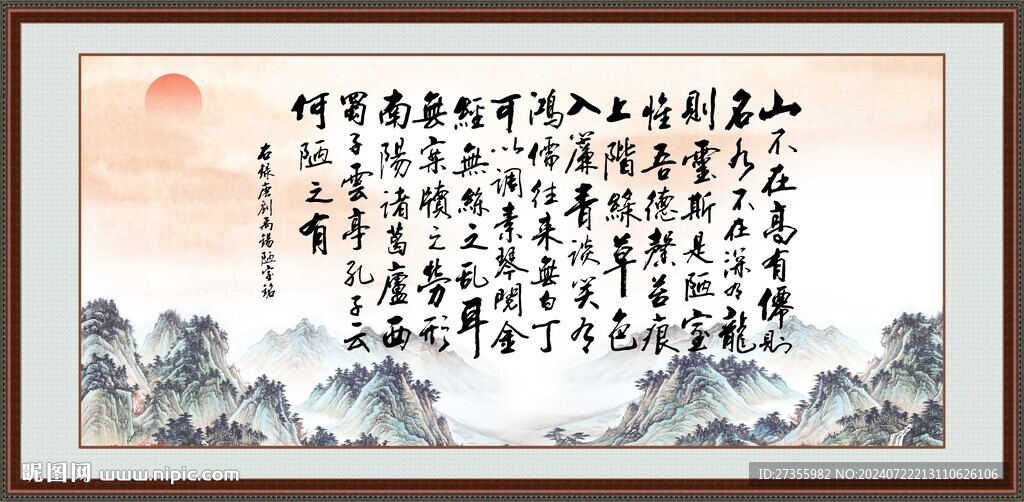 山不在高有僊則
名水不在深有龍
則靈斯是陋室
惟吾德馨苔痕
上階綠草色
入簾青談笑有
鴻儒往来無白丁
可以調素琴閱金
經無絲之乱耳
無案牘之勞形
南陽諸葛廬西
蜀子雲亭孔子云
何陋之有
右錄唐劉禹錫陋室銘
昵图网 www.nipic.com
ID:27355982 NO:20240722213110626106